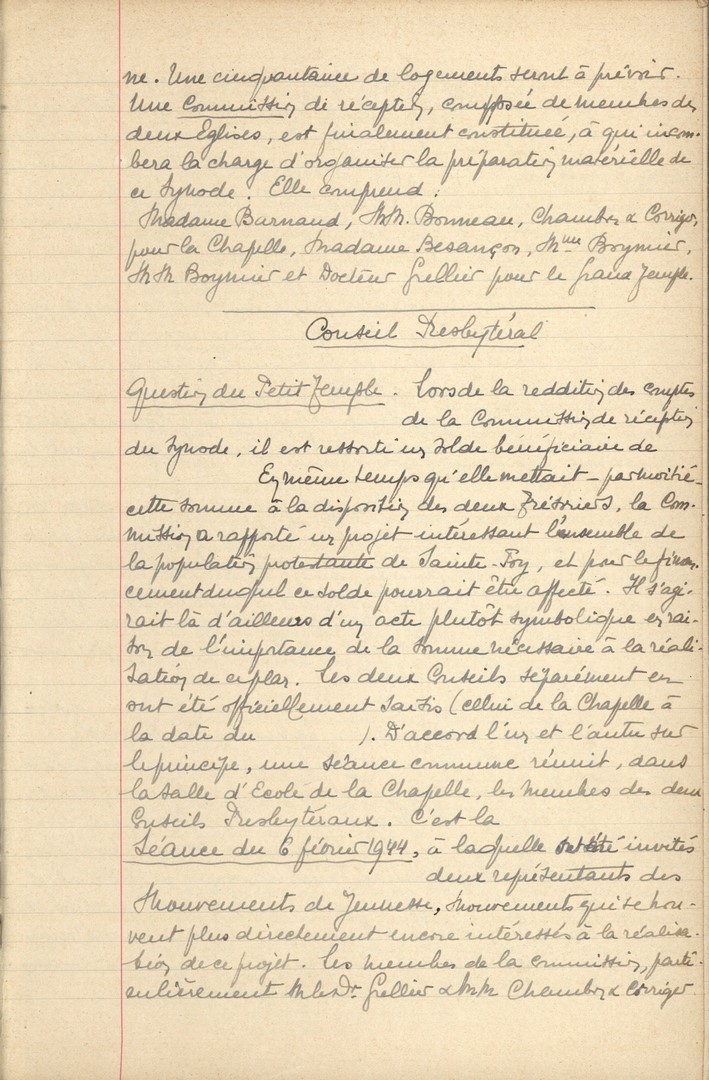 ne. Une cinquantaine de logements seront à prévoir.
Une Commission de réception, composée de membres des
deux Eglises, est finalement constituée, à qui incom-
bera la charge d'organiser la préparation matérielle de
ce Synode. Elle comprend :
Madame Burnand, MM. Bonneau, Chambon & Corriger,
pour la Chapelle, Madame Besançon, Mlle Boymier,
MM Boymier et Docteur Grellier pour le Grand Temple.
Conseil Presbytéral
Question du Petit Temple. Lors de la reddition des comptes
de la Commission de réception
du Synode, il est ressorti un solde bénéficiaire de
En même temps qu'elle mettait - par moitié -
cette somme à la disposition des deux Trésoriers, la Com-
mission a rapporté un projet intéressant l'ensemble de
la population protestante de Sainte-Foy, et pour le finan-
cement duquel ce solde pourrait être affecté. Il s'agi-
rait là d'ailleurs d'un acte plutôt symbolique en rai-
son de l'importance de la somme nécessaire à la réali-
sation de ce plan. Les deux Conseils séparément en
ont été officiellement saisis (celui de la Chapelle à
la date du ). D'accord l'un et l'autre sur
le principe, une séance commune réunit, dans
la salle d'Ecole de la Chapelle, les membres des deux
Conseils Presbytéraux. C'est la
Séance du 6 février 1944, à laquelle ont été invités
deux représentants des
Mouvements de Jeunesse, Mouvements qui se trou-
vent plus directement encore intéressés à la réalisa-
tion de ce projet. Les membres de la commission, parti-
culièrement M. le Dr Grellier & MM Chambon & Corriger